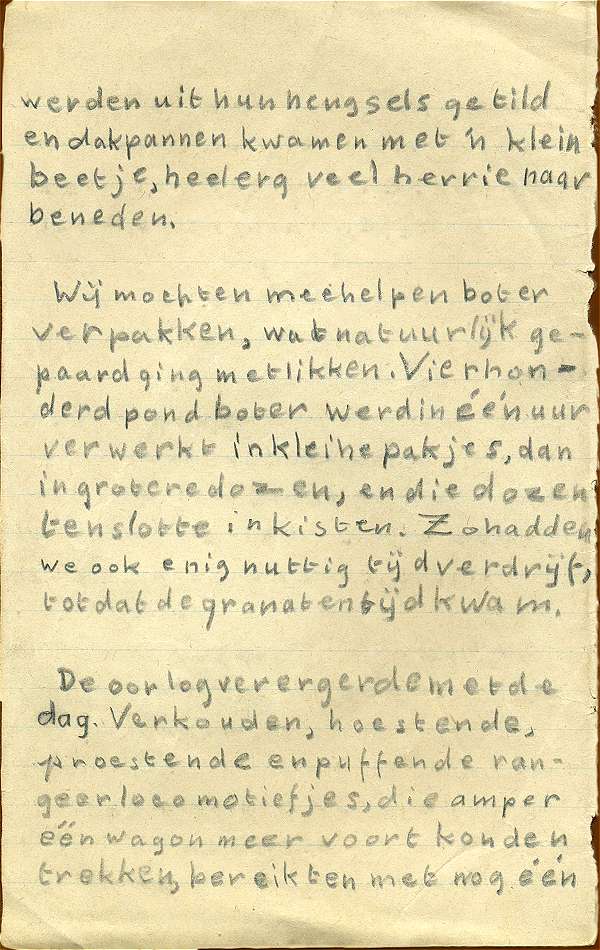 werden uit hun hengsels getild
en dakpannen kwamen met 'n klein
beetje, heel erg veel herrie naar
beneden.
Wij mochten meehelpen boter
verpakken, wat natuurlijk ge-
paard ging met likken. Vierhon-
derd pond boter werd in één uur
verwerkt in kleine pakjes, dan
in grotere dozen, en die dozen
tenslotte in kisten. Zo hadden
we ook enig nuttig tijdverdrijf,
totdat de granatentijd kwam.
De oorlog verergerde met de
dag. Verkouden, hoestende,
proestende en puffende ran-
geerlocomotiefjes, die amper
één wagon meer voort konden
trekken, bereikten met nog één